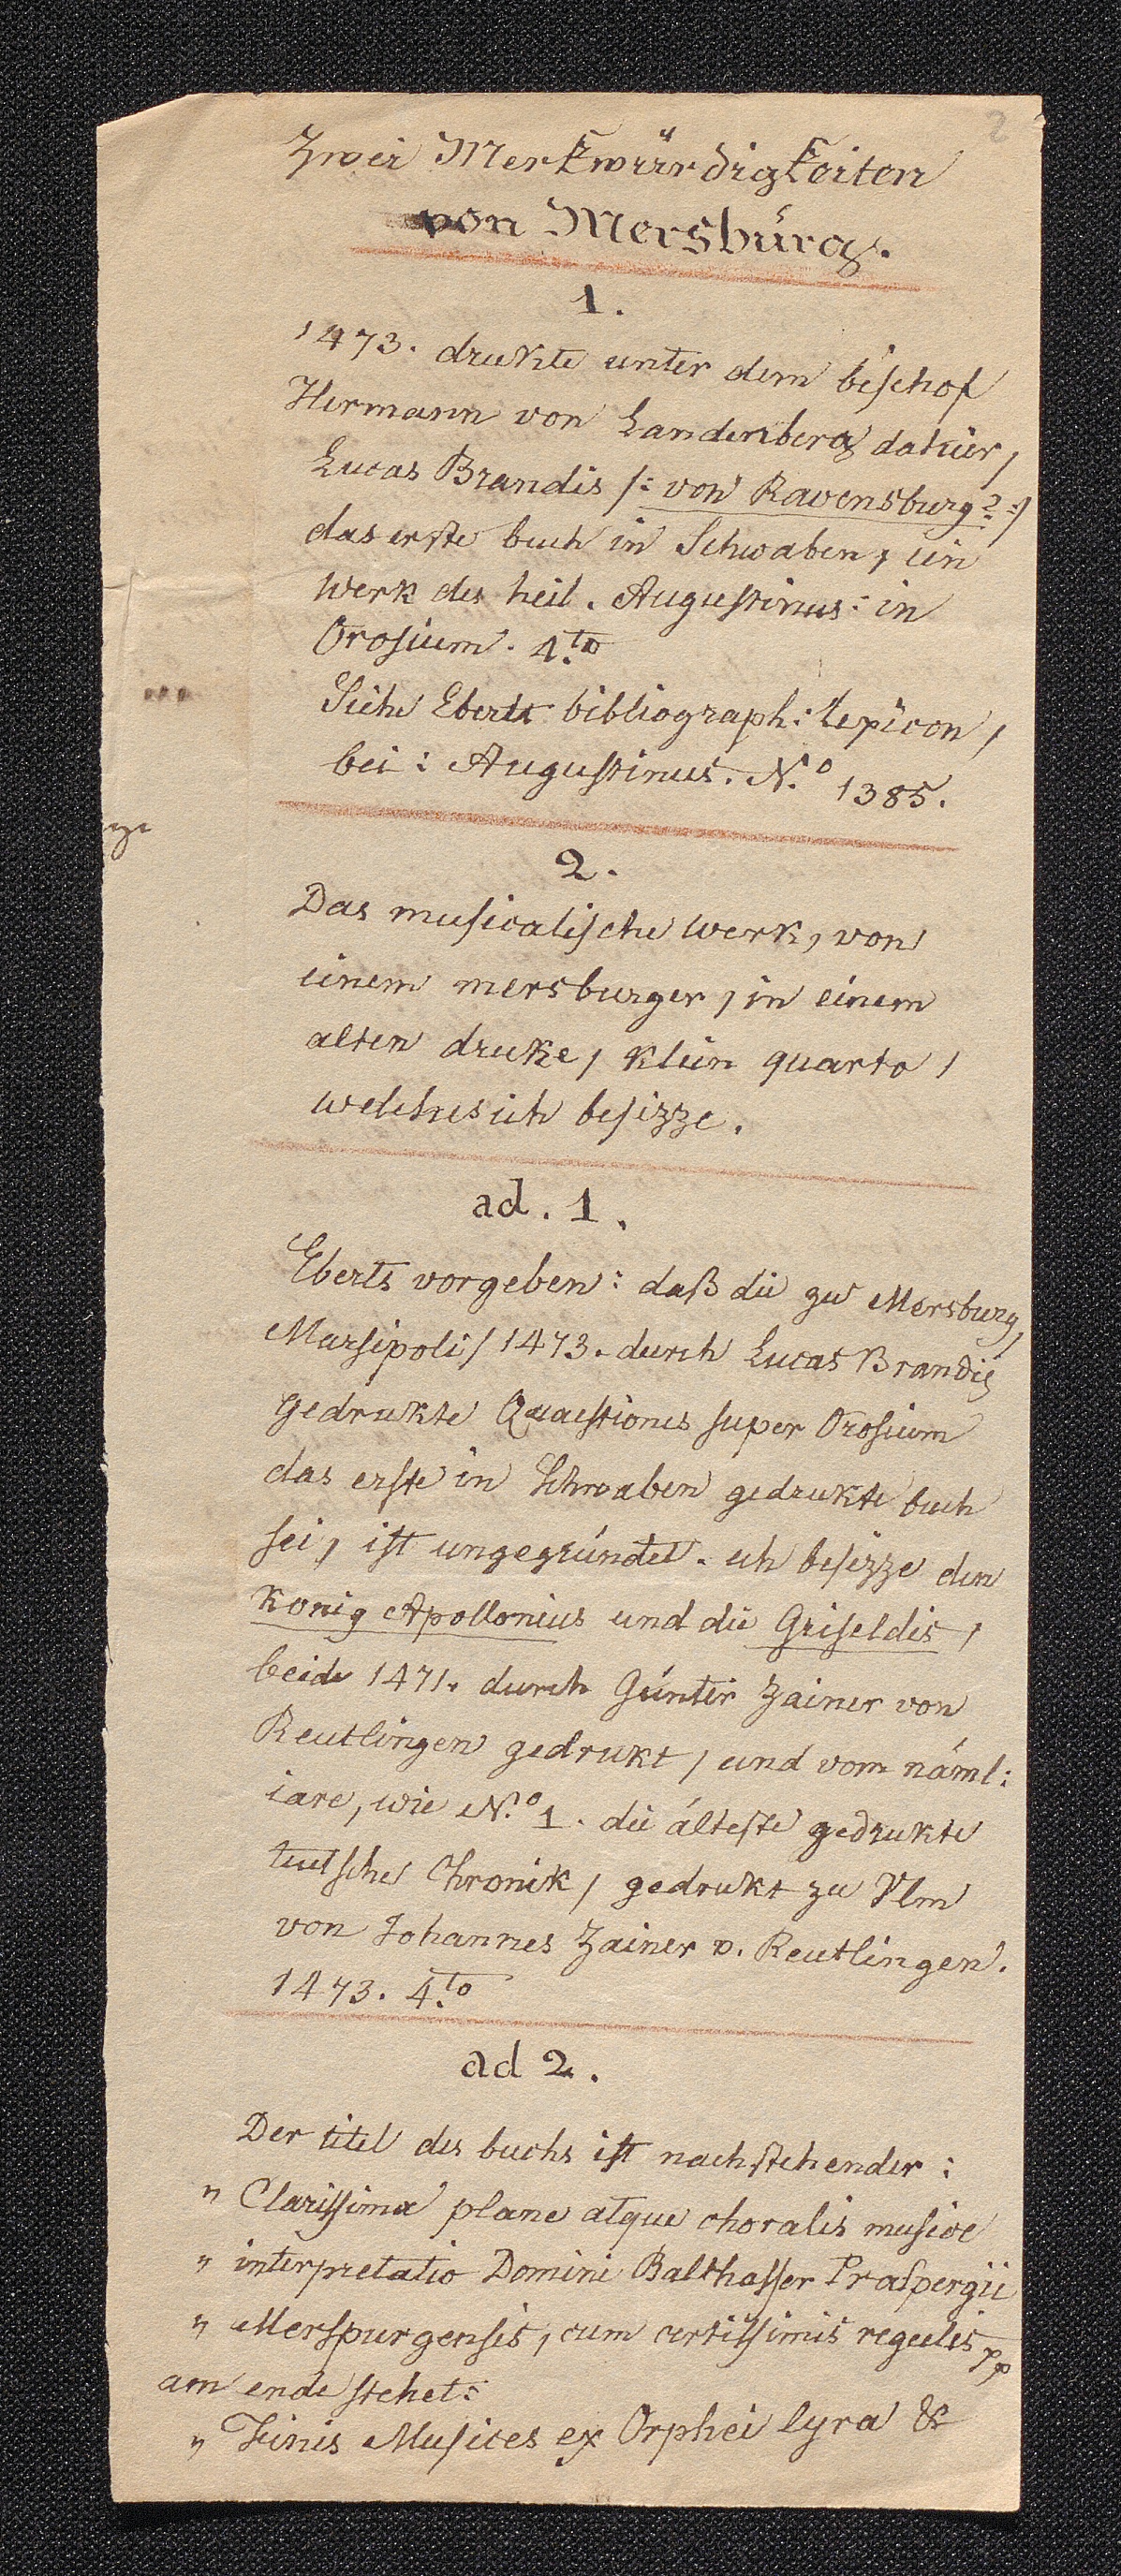 2
Zwei Merkwürdigkeiten
von Mersburg.
1.
1473. drukte unter dem bischof
Hermann von Landenberg dahier,
Lucas Brandis /: von Ravensburg? :/
das erste buch in Schwaben, ein
werk des heil. Augustinus: in
Orosium. 4.to
Siehe Eberts bibliograph: lexicon,
bei: Augustinus. N.o 1385.
2.
Das musicalische werk, von
einem mersburger, in einem
alten druke, klein quarto,
welches ich besizze.
ad. 1.
Eberts vorgeben: daß die zu Mersburg,
Marsipoli, 1473. durch Lucas Brandis
gedrukte Quaestiones super Orosium
das erste in Schwaben gedrukte buch
sei, ist ungegründet. ich besizze den
konig Apollonius und die Griseldis,
beide 1471. durch Günter Zainer von
Reutlingen gedrukt, und vom näml:
iare, wie N.o 1. die älteste gedrukte
teutsche Chronik, gedrukt zu Vlm
von Johannes Zainer v. Reutlingen.
1473. 4.to
ad 2.
Der titel des buchs ist nachstehender:
„ Clarissima plane atque choralis musice
„ interpretatio Domini Balthasser Praspergii
„ Merspurgensis, cum certissimis regulis pp
am ende stehet:
„ Finis Musices ex Orphei lyra &